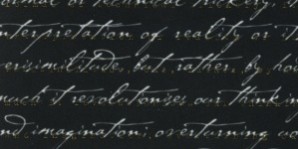 ormal or technical trickery, it
nterpretation of reality or it
verisimilitude, but, rather, by how
much it revolutionises our thinking
nd imagination; overturning